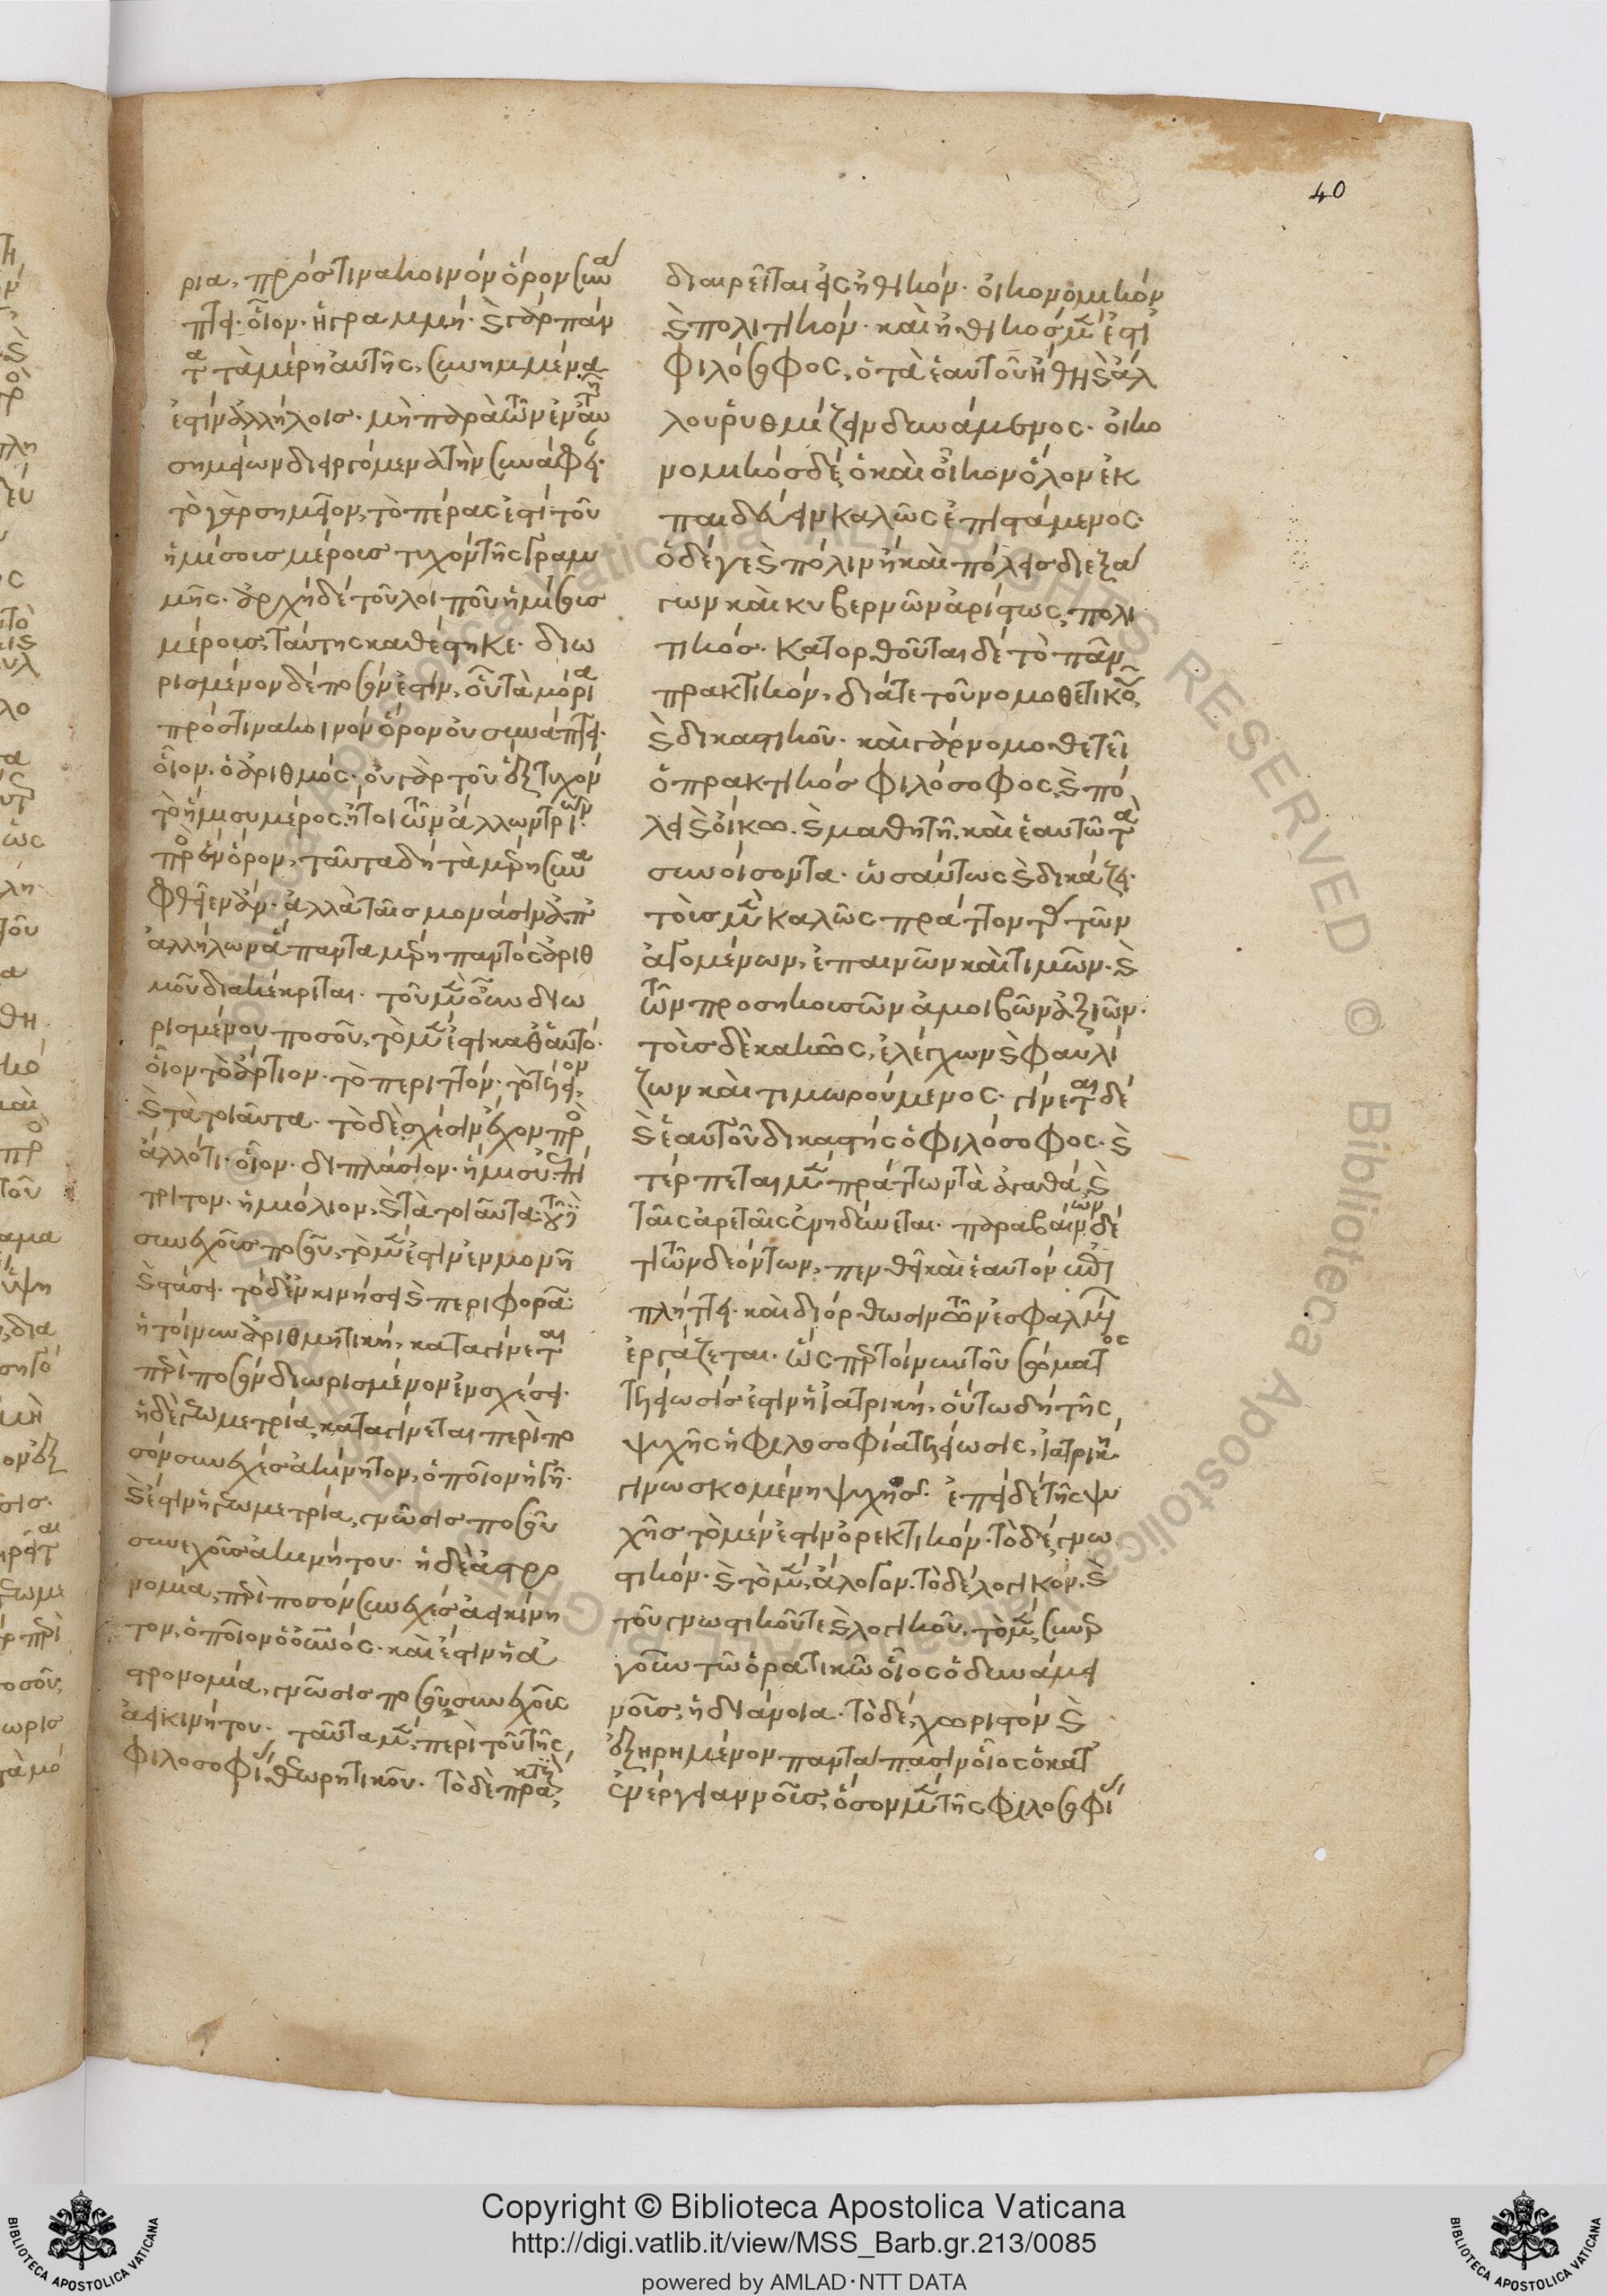 40
ρια, πρός τινα κοινὸν ὅρον συνά
πτει· οἷον· ἡ γραμμή· καὶ γὰρ πάν
τα τὰ μέρη αὐτῆς, συνημμένα
ἐστὶν ἀλλήλοις· μὴ παρὰ τῶν ἐν αὐτῇ
σημείων διειργόμενα τὴν συνάφειαν·
τὸ γὰρ σημεῖον, τὸ πέρας ἐστὶ τοῦ
ἡμίσοις μέροις τυχὸν τῆς γραμ
μῆς· ἀρχὴ δὲ τοῦ λοιποῦ ἡμίσοις
μέροις, ταύτης καθέστηκε· διω
ρισμένον δὲ ποσόν ἐστιν, οὗ τὰ μόρια
πρός τινα κοινὸν ὅρον οὐ συνάπτει·
οἷον· ὁ ἀριθμός· οὐ γὰρ τοῦ ἓξ τυχὸν
τὸ ἥμισυ μέρος, ἤτοι τῶν ἄλλων τριῶν·
πρὸς ὃν ὅρον, ταῦτα δὴ τὰ μέρη συνα
φθεῖεν ἄν· ἀλλὰ ταῖς μονάσιν ἀπ'
ἀλλήλων ἅπαντα μέρη παντὸς ἀριθ
μοῦ διακέκριται· τοῦ μὲν οὖν διω
ρισμένου ποσοῦ, τὸ μέν ἐστι καθ' ἑαυτό·
οἷον τὸ ἄρτιον· τὸ περιττόν· τὸ τέλειον,
καὶ τὰ τοιαῦτα· τὸ δὲ σχέσιν ἔχον πρὸς
ἄλλό τι· οἷον· διπλάσιον· ἥμισυ·
τριτον· ἡμιόλιον, καὶ τὰ τοιαῦτα· τοῦ δὲ
συνεχοῖς ποσοῦ, τὸ μέν ἐστιν ἐν μονῇ
καὶ στάσει· τὸ δὲ ἐν κινήσει καὶ περιφορᾷ·
ἡ τοίνυν ἀριθμητικὴ, καταγίνεται
περὶ ποσὸν διωρισμένον ἐν σχέσει·
ἡ δὲ γεωμετρία, καταγίνεται περὶ πο
σὸν συνεχὲς ἀκίνητον, ὁποῖον ἡ γῆ·
καὶ ἔστιν ἡ γεωμετρία, γνῶσις ποσοῦ
συνεχοῖς ἀκινήτου· ἡ δὲ ἀστρο
νομία, περὶ ποσὸν συνεχὲς ἀεικίνη
τον, ὁποῖον ὁ οὐρανός· καὶ ἔστιν ἡ ἀ
στρονομία, γνῶσις ποσοῦ συνεχοῖς
ἀεικινήτου· ταῦτα μὲν, περὶ τοῦ τῆς
φιλοσοφίας θεωρητικοῦ· τὸ δὲ πρακτικὸν,
διαιρεῖται εἰς ἠθικόν· οἰκονομικόν
καὶ πολιτικόν· καὶ ἠθικὸς μέν ἐστι
φιλόσοφος, ὁ τὰ ἑαυτοῦ ἤθη καὶ ἄλ
λου ῥυθμίζειν δυνάμενος· οἰκο
νομικὸς δὲ, ὁ καὶ οἶκον ὅλον ἐκ
παιδεύειν καλῶς ἐπιστάμενος·
ὁ δέ γε καὶ πόλιν ἢ καὶ πόλεις διεξά
γων καὶ κυβερνῶν ἀρίστως, πολι
τικός· κατορθοῦται δὲ τὸ πᾶν
πρακτικόν, διά τε τοῦ νομοθετικοῦ,
καὶ δικαστικοῦ· καὶ γὰρ νομοθετεῖ
ὁ πρακτικὸς φιλόσοφος, καὶ πό
λει καὶ οἴκῳ· καὶ μαθητῇ, καὶ ἑαυτῷ τὰ
συνοίσοντα· ὡσαύτως καὶ δικάζει·
τοὶς μὲν καλῶς πράττοντας τῶν
ἀγομένων, ἐπαινῶν καὶ τιμῶν· καὶ
τῶν προσηκοισῶν ἀμοιβῶν ἀξιῶν·
τοὶς δὲ κακῶς, ἐλέγχων καὶ φαυλί
ζων καὶ τιμωρούμενος· γίνεται δὲ
καὶ ἑαυτοῦ δικαστὴς ὁ φιλόσοφος· καὶ
τέρπεται μὲν πράττων τὰ ἀγαθά, καὶ
ταῖς ἀρεταῖς ἐνηδύνεται· παραβαίνων δέ
τι τῶν δεόντων, πενθεῖ καὶ ἑαυτὸν ἐπι
πλήττει· καὶ διόρθωσιν τῶν ἐσφαλμένων
ἐργάζεται· ὡς περ τοίνυν τοῦ σώματος
τελείωσίς ἐστιν ἡ ἰατρικὴ, οὕτω δὴ τῆς
ψυχῆς ἡ φιλοσοφία τελείωσις, ἰατρικὴ
γινωσκομένη ψυχῆς· ἐπεὶ δὲ τῆς ψυ
χῆς τὸ μέν ἐστιν ὀρεκτικόν· τὸ δὲ, γνω
στικόν· καὶ τὸ μὲν, ἄλογον· τὸ δὲ λογικόν, καὶ
τοῦ γνωστικοῦ τε καὶ λογικοῦ, τὸ μὲν, συνερ
γοῦν τῷ ὁρατικῷ οἷος ὁ δυνάμει
νοῖς, ἡ διάνοια· τὸ δὲ, χωριστὸν καὶ
ἐξῃρημένον παντάπασιν οἷος ὁ κατ'
ἐνέργειαν νοῖς, ὅσον μὲν τῆς φιλοσοφίας
Copyright © Biblioteca Apostolica Vaticana
http://digi.vatlib.it/view/MSS_Barb.gr.213/0085
powered by AMLAD·NTT DATA